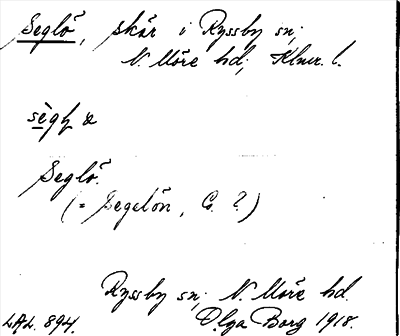 Seglö, skär i Ryssby sn;
N. Möre hd; Klmr. l.
Seglö.
(= Segelön, G. ?)
Ryssby sn; N. Möre hd.
LAL. 894. Olga Borg 1918.